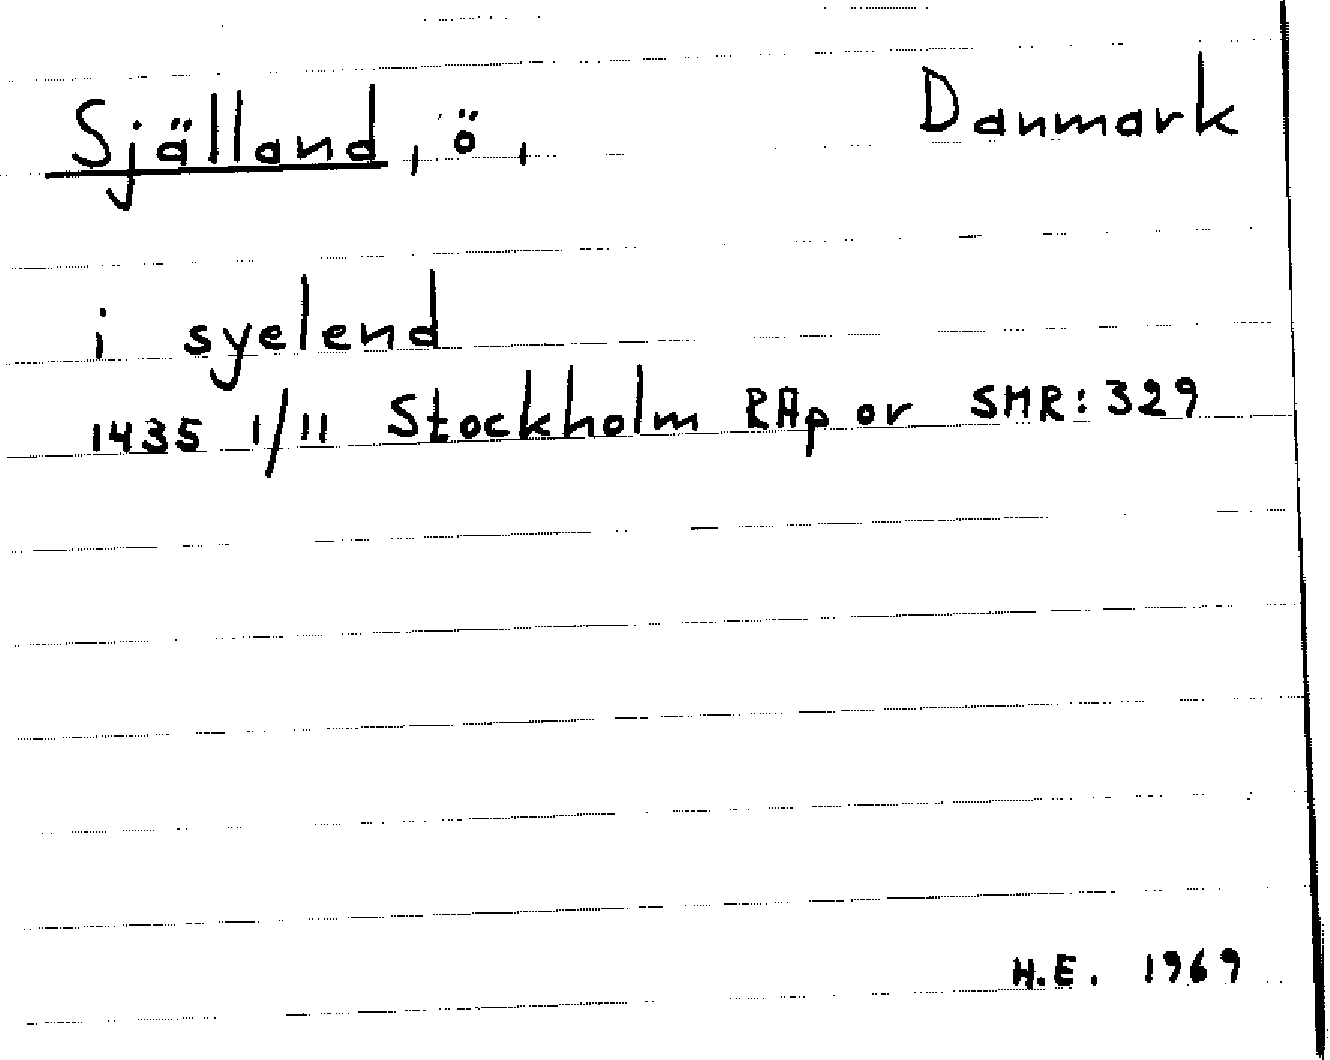 Själland, ö, Danmark
i syelend
1435 1/11 Stockholm RAp or SMR:329
H.E. 1969